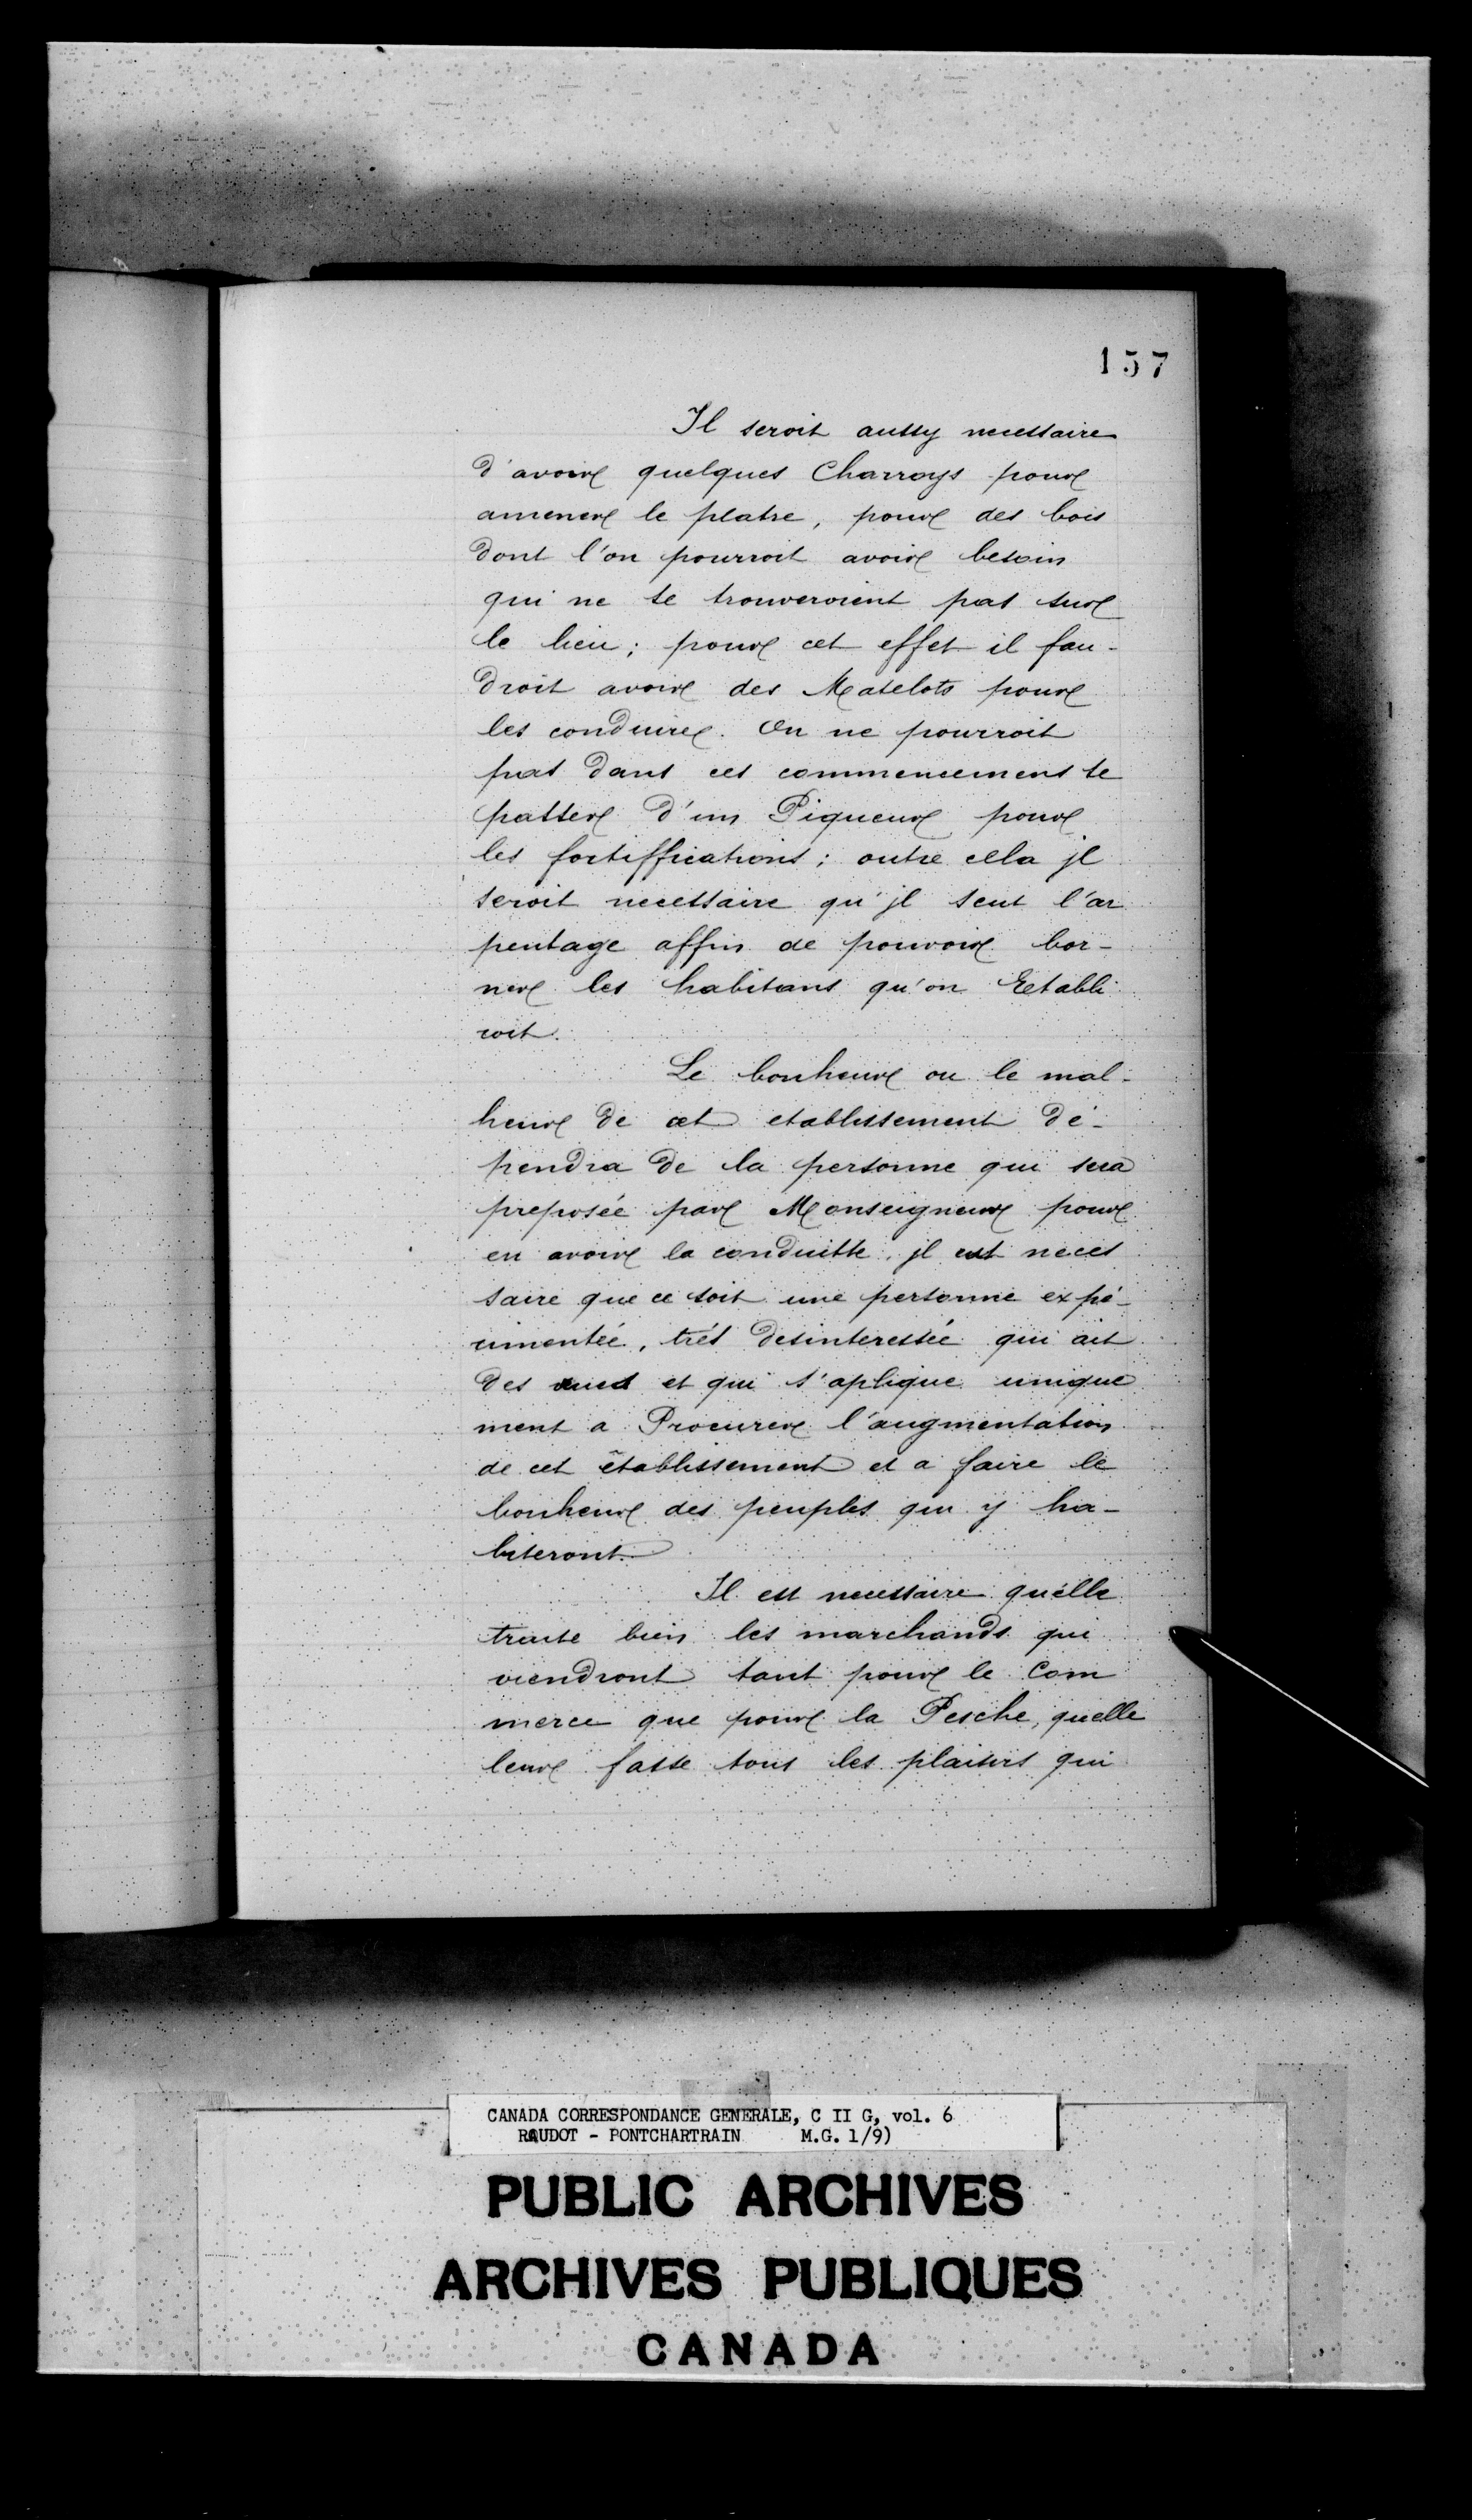 157
Il seroit aussy necessaire
d'avoir quelques Charroys pour
amener le platre, pour des bois
dont l'on pourroit avoir besoin
qui ne se trouveroient pas sur
le lieu; pour cet effet il fau-
droit avoir des Matelots pour
les conduire. On ne pourroit
pas dans ces commencemens se
passer d'un Piqueur pour
les fortiffications; outre cella jl
seroit necessaire qu'jl seut l'ar
pentage affin de pouvoir bor-
ner les habitans qu'on Establi
roit.
Le bonheur ou le mal-
heur de cet etablissement dé-
pendra de la personne qui sera
preposée par Monseigneur pour
en avoir la conduitte, jl est neces
saire que ce soit une personne expé-
rimentée, trés desinteressée qui ait
des vues et qui s'aplique unique
ment a Procurer l'augmentation
de cet établissement et a faire le
bonheur des peuples qui y ha-
biteront.
Il est necessaire qu'elle
traite bien les marchands qui
viendront tant pour le Com
merce que pour la Pesche, quelle
leur fasse tous les plaisirs qui
CANADA CORRESPONDANCE GENERALE, C II G, vol. 6
RAUDOT - PONTCHARTRAIN M.G. 1/9)
PUBLIC ARCHIVES
ARCHIVES PUBLIQUES
CANADA